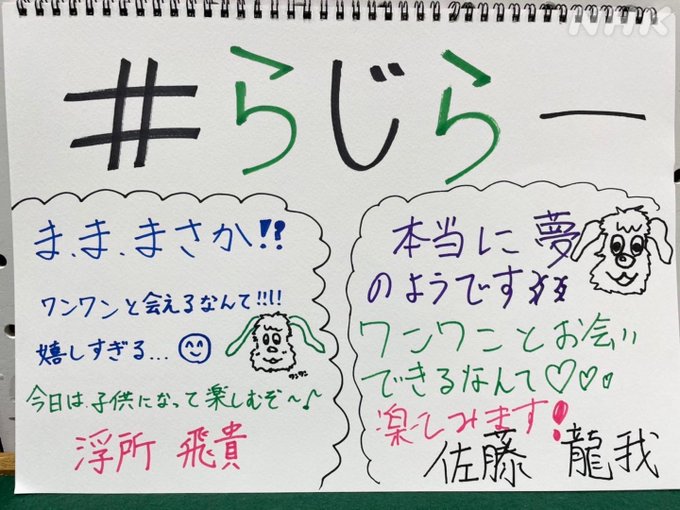 NHK
#らじらー
ま、ま、まさか!?
ワンワンと会えるなんて!!!!
嬉しすぎる…
ワンワン
今日は、子供になって楽しむぞ〜♪
浮所 飛貴
本当に夢
のようです!!
ワンワンとお会い
できるなんて♡♡。
楽しみます!
佐藤 龍我